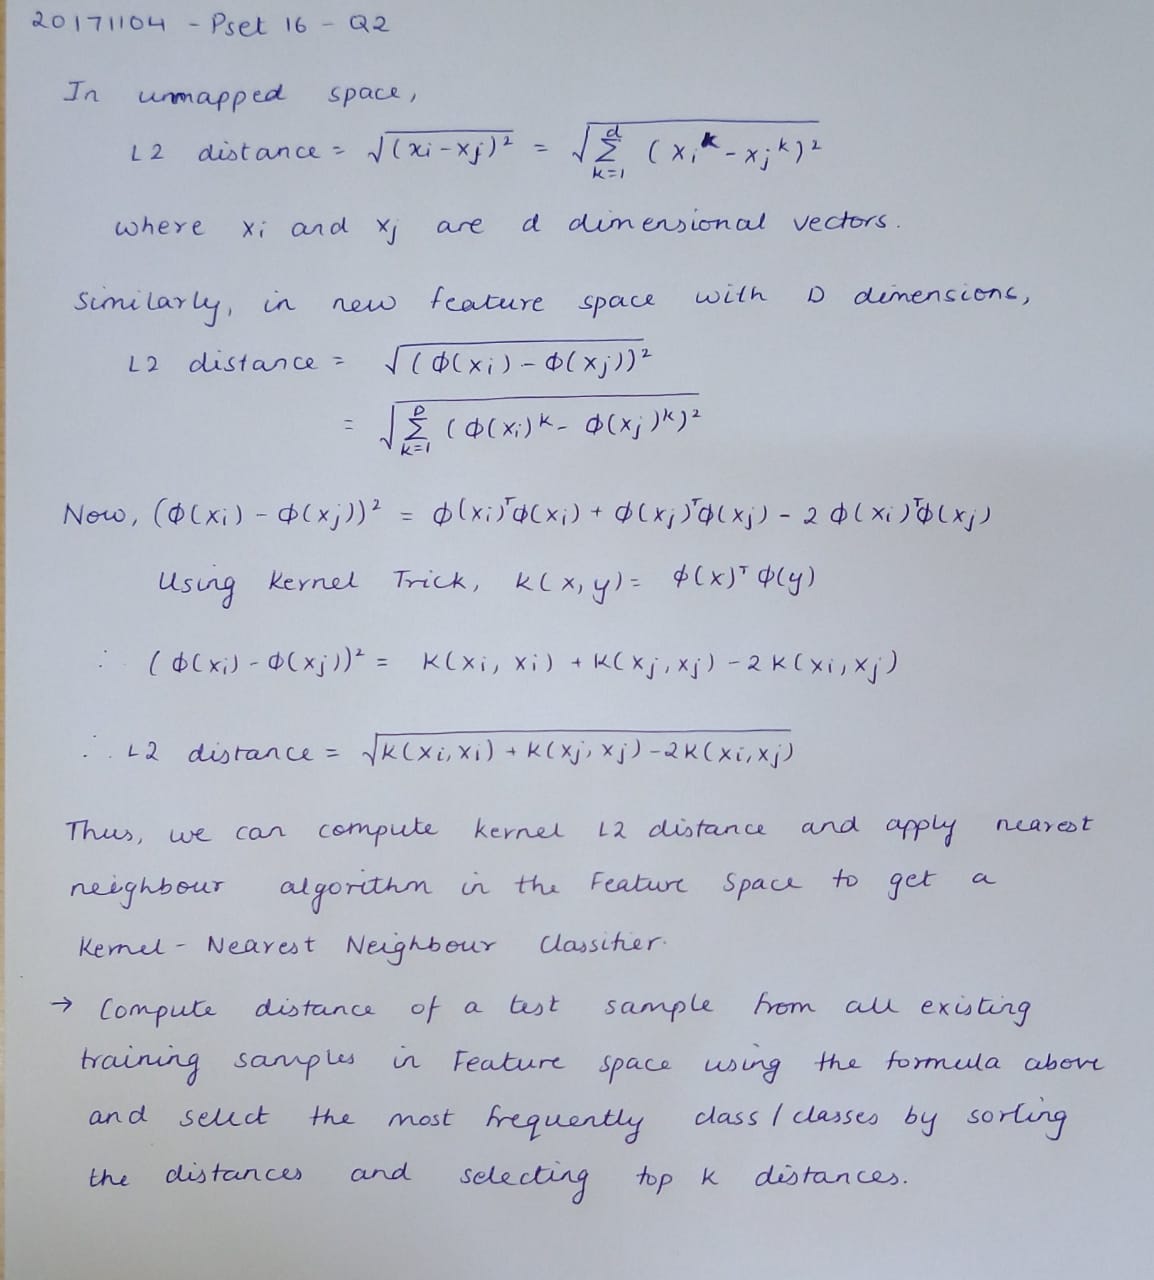 20171104 - Pset 16 - Q2
In unmapped space,
L2 distance = √(xi - xj)² = √Σ_{k=1}^{d} (xi^k - xj^k)²
where xi and xj are d dimensional vectors.
Similarly, in new feature space with D dimensions,
L2 distance = √(ϕ(xi) - ϕ(xj))²
= √Σ_{k=1}^{D} (ϕ(xi)^k - ϕ(xj)^k)²
Now, (ϕ(xi) - ϕ(xj))² = ϕ(xi)ᵀϕ(xi) + ϕ(xj)ᵀϕ(xj) - 2 ϕ(xi)ᵀϕ(xj)
Using Kernel Trick, K(x, y) = ϕ(x)ᵀ ϕ(y)
∴ (ϕ(xi) - ϕ(xj))² = K(xi, xi) + K(xj, xj) - 2 K(xi, xj)
∴ L2 distance = √K(xi, xi) + K(xj, xj) - 2K(xi, xj)
Thus, we can compute kernel L2 distance and apply nearest
neighbour algorithm in the Feature Space to get a
Kernel - Nearest Neighbour Classifier.
→ Compute distance of a test sample from all existing
training samples in Feature space using the formula above
and select the most frequently class / classes by sorting
the distances and selecting top k distances.